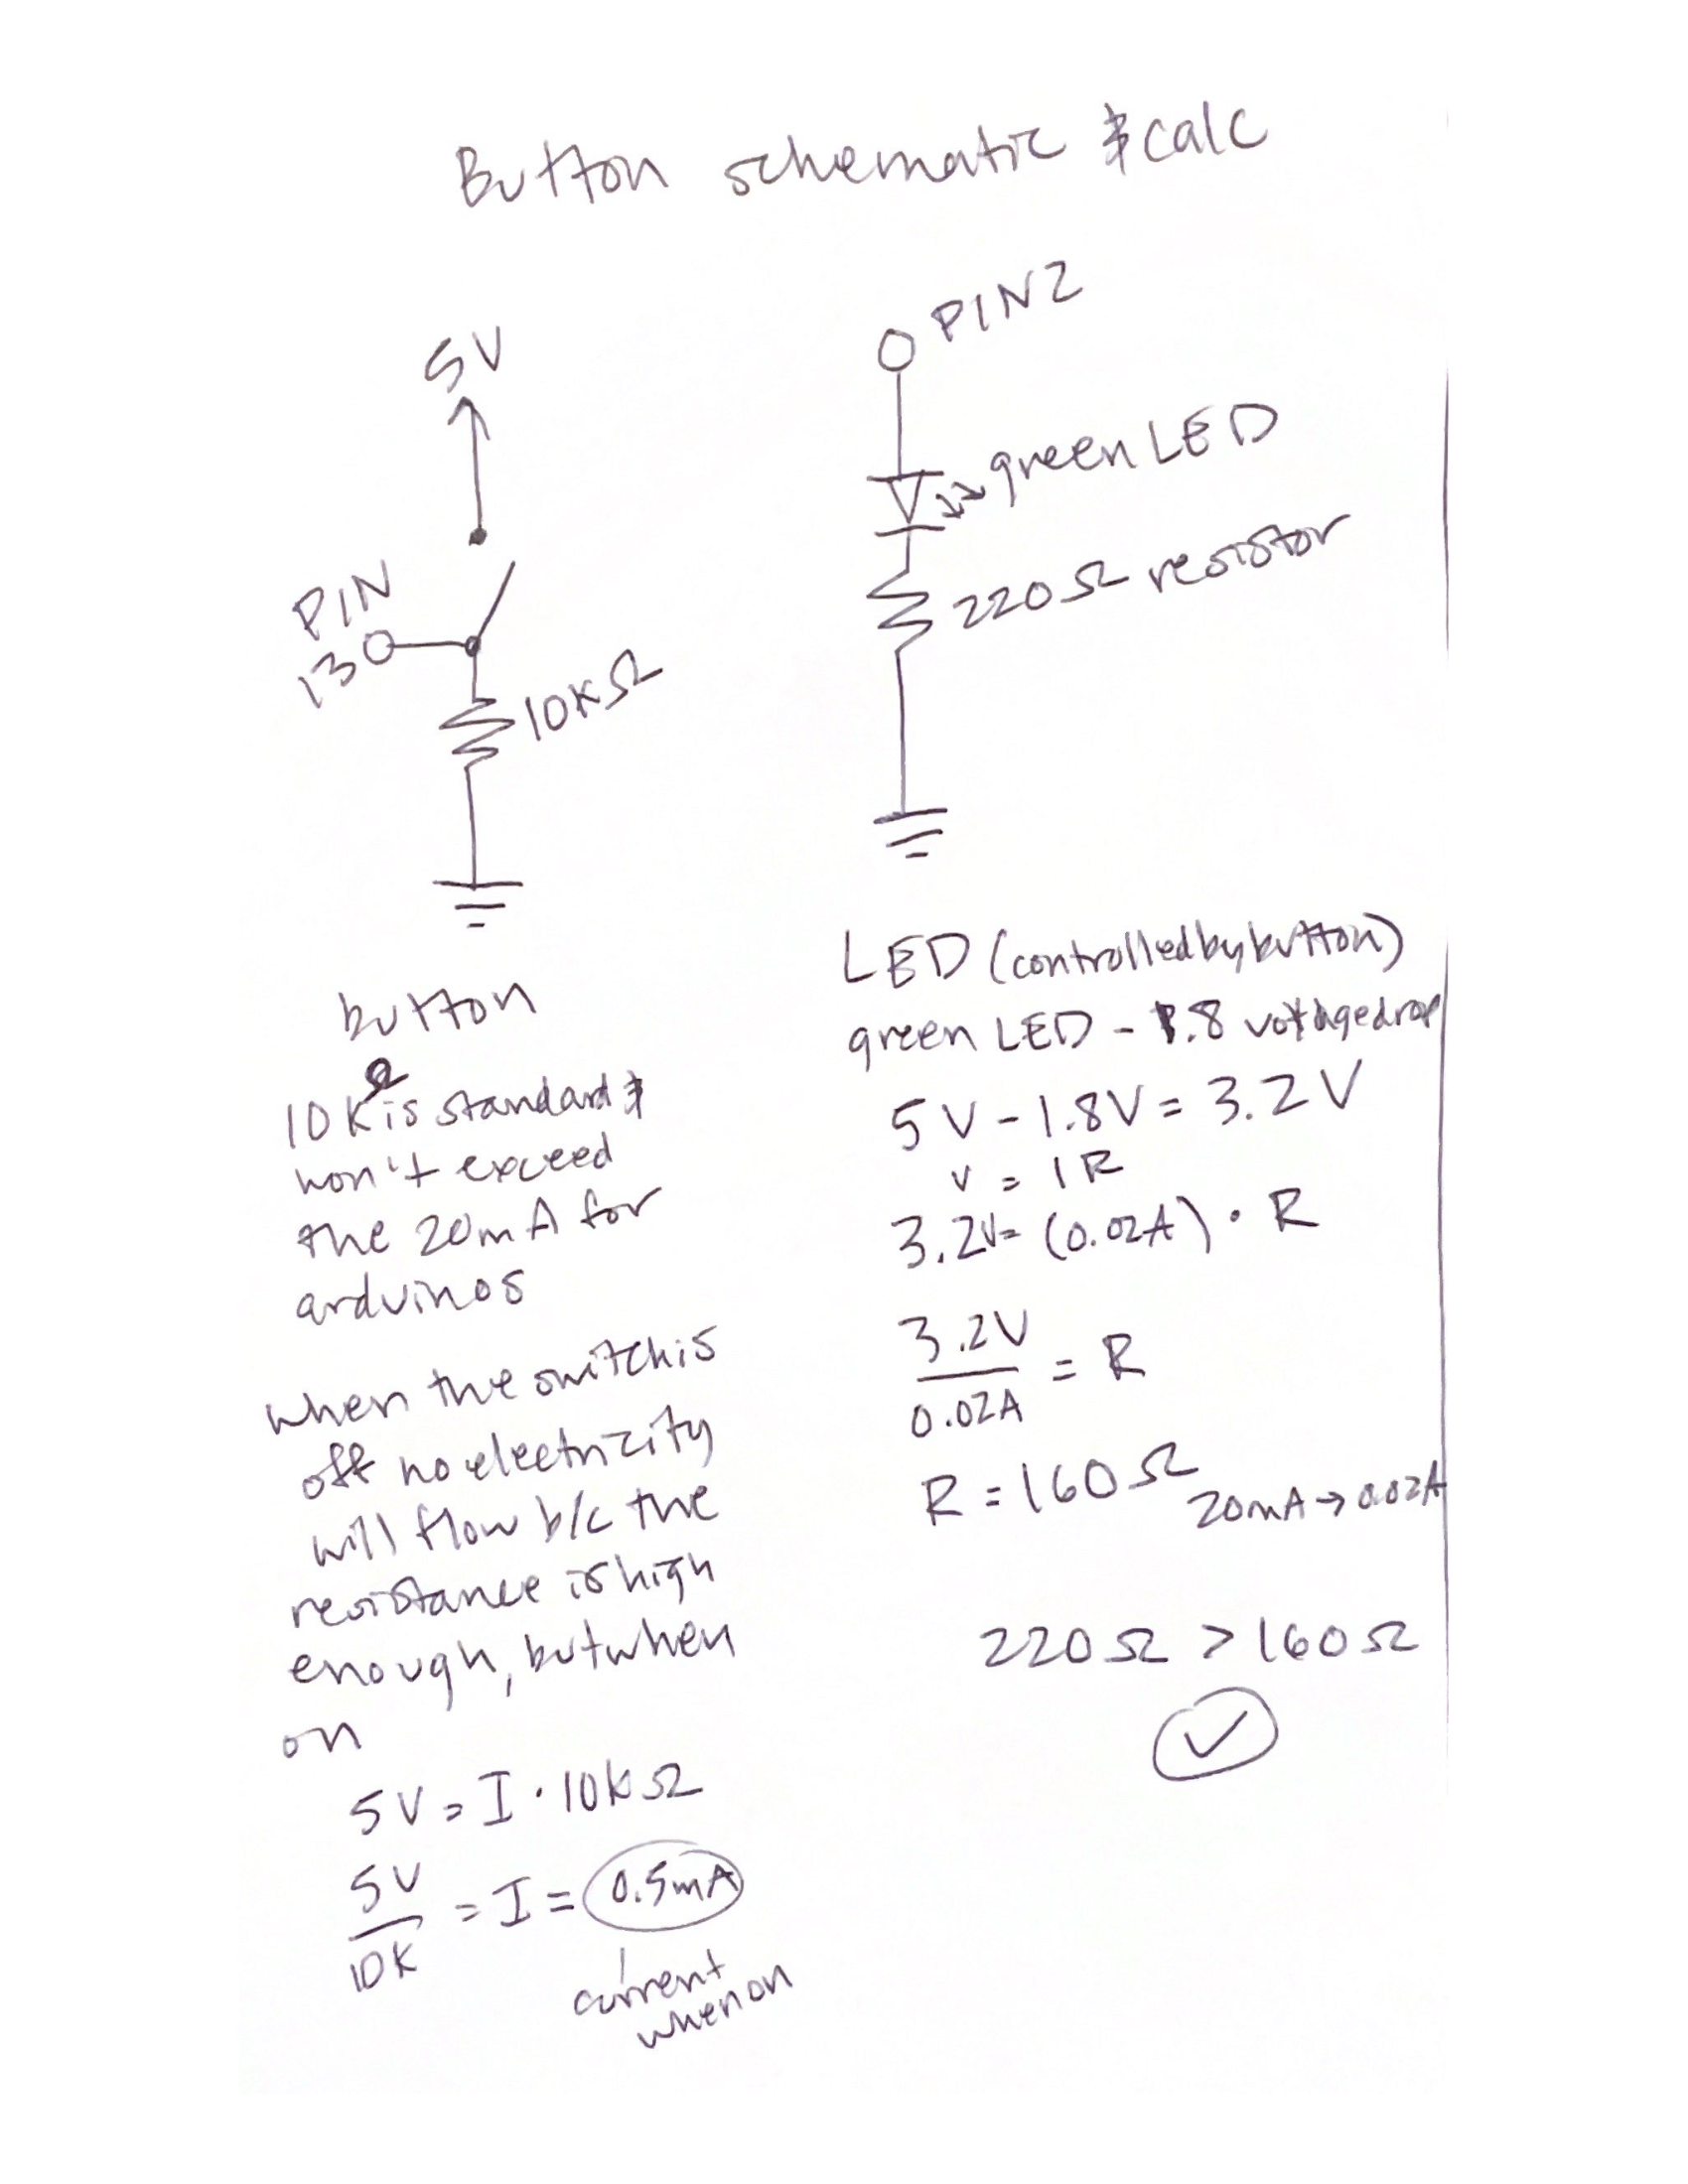 Button schematic & calc
5V
PIN
13
10KΩ
button
10KΩ is standard &
won't exceed
the 20mA for
arduinos
when the switch is
off no electricity
will flow b/c the
resistance is high
enough, but when
on
5V = I · 10kΩ
5V
10K
= I = 0.5mA
current
when on
PIN2
green LED
220Ω resistor
LED (controlled by button)
green LED - 1.8 voltage drop
5V - 1.8V = 3.2V
V = IR
3.2V = (0.02A) · R
3.2V
0.02A
= R
R = 160Ω
20mA → 0.02A
220Ω > 160Ω
✓